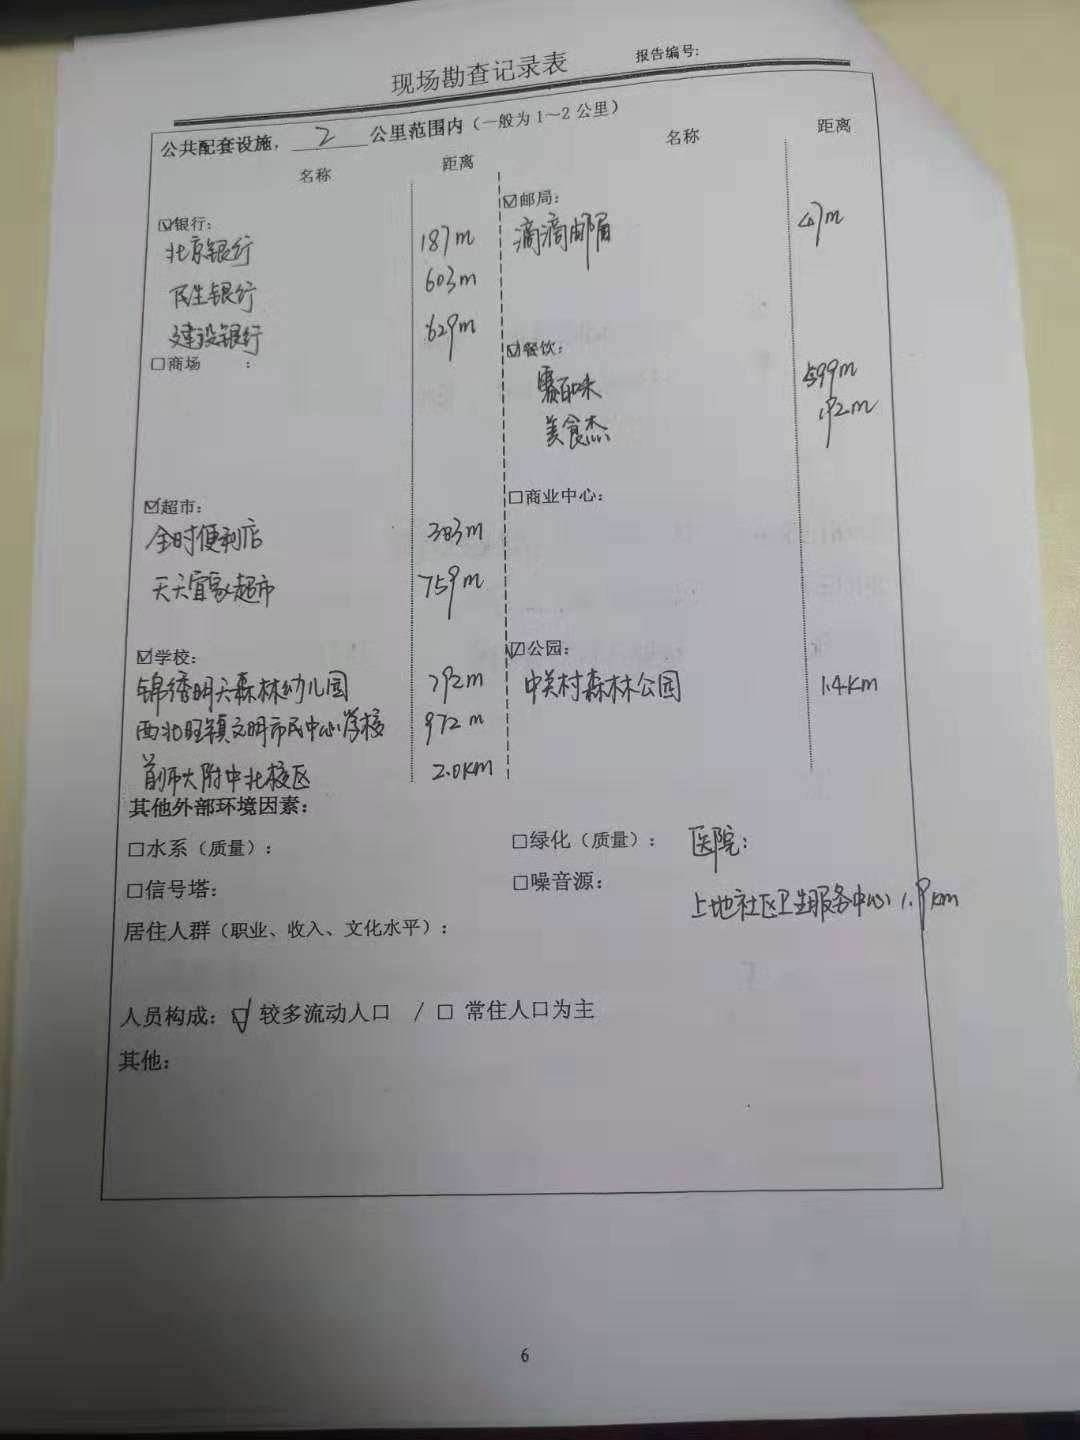 现场勘查记录表
报告编号:
公共配套设施，2公里范围内（一般为1～2公里）
名称 距离 名称 距离
☑银行: ☑邮局:
北京银行 187m 滴滴邮局 47m
民生银行 603m
建设银行 629m
□商场 : ☑餐饮:
赛百味 599m
美食杰 192m
☑超市: □商业中心:
全时便利店 383m
天天宜家超市 759m
☑学校: ☑公园:
锦绣明天森林幼儿园 792m 中关村森林公园 1.4km
西北旺镇文明市民中心学校 972m
首师大附中北校区 2.0km
其他外部环境因素:
□水系（质量）: □绿化（质量）: 医院:
□信号塔: □噪音源: 上地社区卫生服务中心 1.9km
居住人群（职业、收入、文化水平）:
人员构成: ☑ 较多流动人口 / □ 常住人口为主
其他:
6